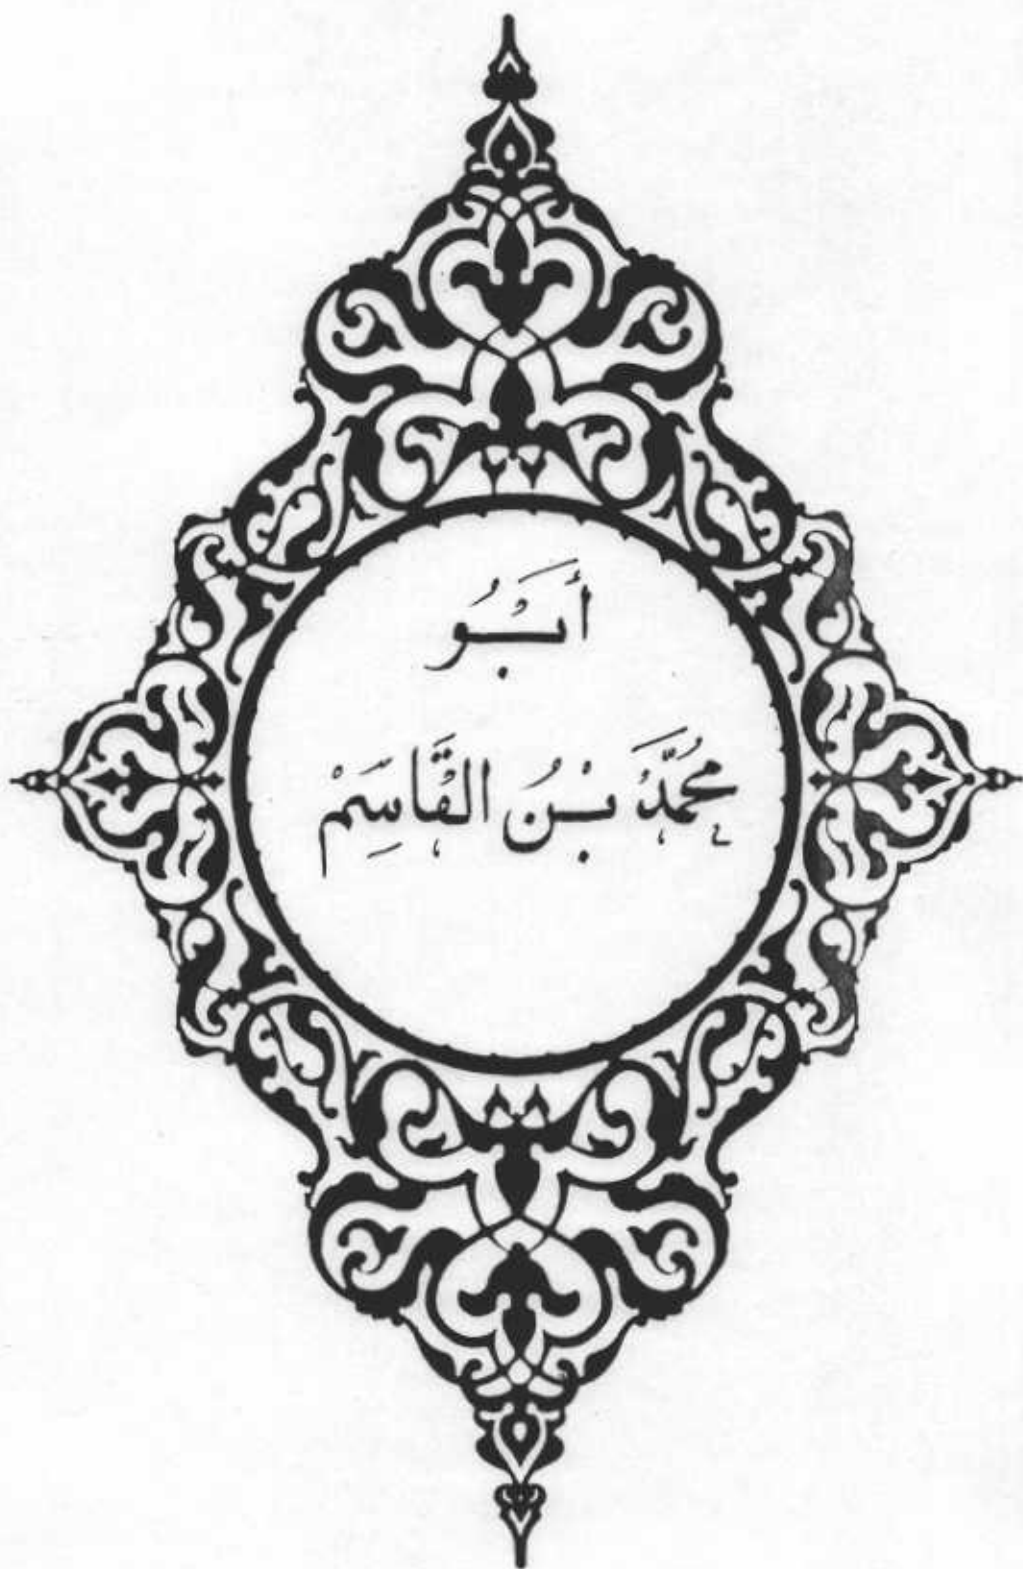 أَبُو
مُحَمَّدُ بْنُ الْقَاسِمْ